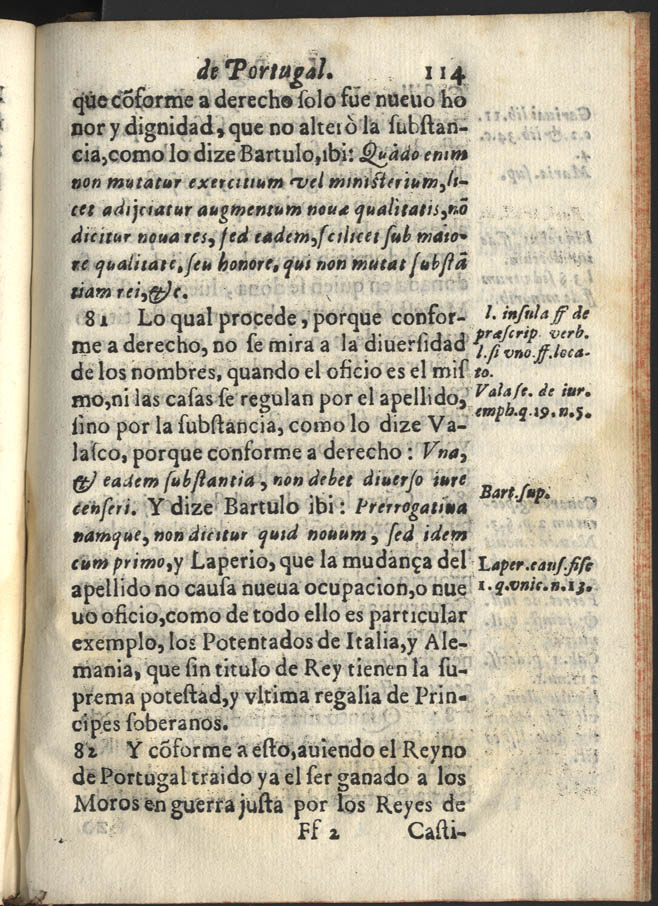 de Portugal. 114
que cõforme a derecho ſolo fue nueuo ho
nor y dignidad, que no alterò la ſubſtan-
cia, como lo dize Bartulo, ibi: Quãdo enim
non mutatur exercitium vel miniſterium, li-
cet adijciatur augmentum nouæ qualitatis, nõ
dicitur noua res, ſed eadem, ſcilicet ſub maio-
re qualitate, ſeu honore, qui non mutat ſubſtã
tiam rei, &c.
81 Lo qual procede, porque confor-
me a derecho, no ſe mira a la diuerſidad
de los nombres, quando el oficio es el miſ
mo, ni las caſas ſe regulan por el apellido,
ſino por la ſubſtancia, como lo dize Va-
laſco, porque conforme a derecho: Vna,
& eadem ſubſtantia, non debet diuerſo iure
cenſeri. Y dize Bartulo ibi: Prerrogatiua
namque, non dicitur quid nouum, ſed idem
cum primo, y Laperio, que la mudança del
apellido no cauſa nueua ocupacion, o nue
uo oficio, como de todo ello es particular
exemplo, los Potentados de Italia, y Ale-
mania, que ſin titulo de Rey tienen la ſu-
prema poteſtad, y vltima regalia de Prin-
cipes ſoberanos.
82 Y cõforme a eſto, auiendo el Reyno
de Portugal traido ya el ſer ganado a los
Moros en guerra juſta por los Reyes de
Ff 2 Caſti-
l. inſula ff de
præſcrip. verb.
l. ſi vno. ff. loca-
to.
Valaſc. de iur.
emph. q. 19. n. 5.
Bart. ſup.
Laper. cauſ. fiſc
1. q. vnic. n. 13.